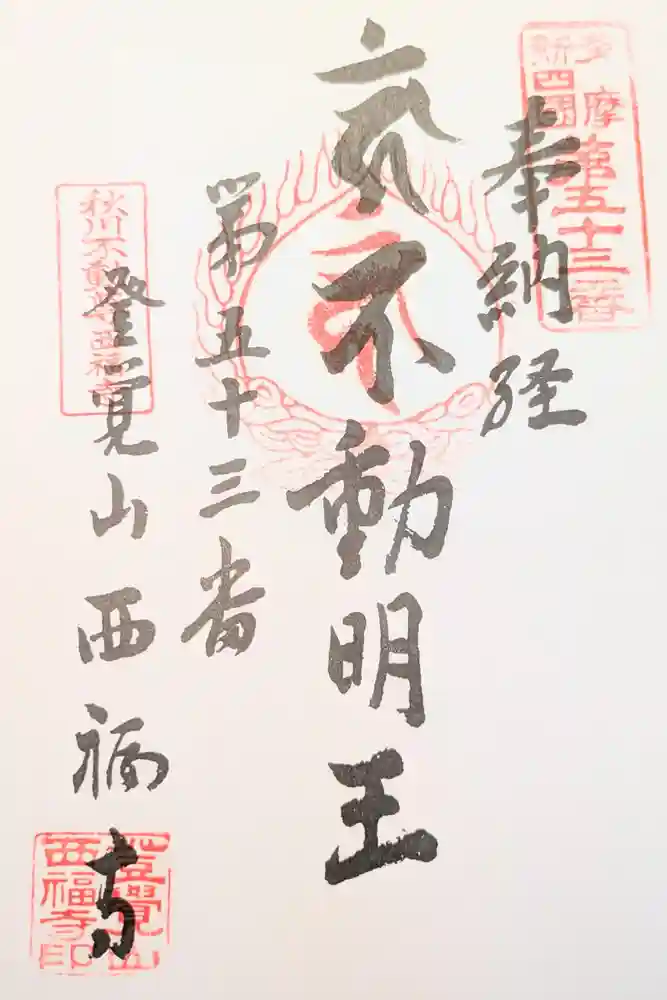 多摩
新四國
第五十三番
奉納経
不動明王
第五十三番
秋川不動尊西福寺
登覚山西福寺
登覺山
西福寺印